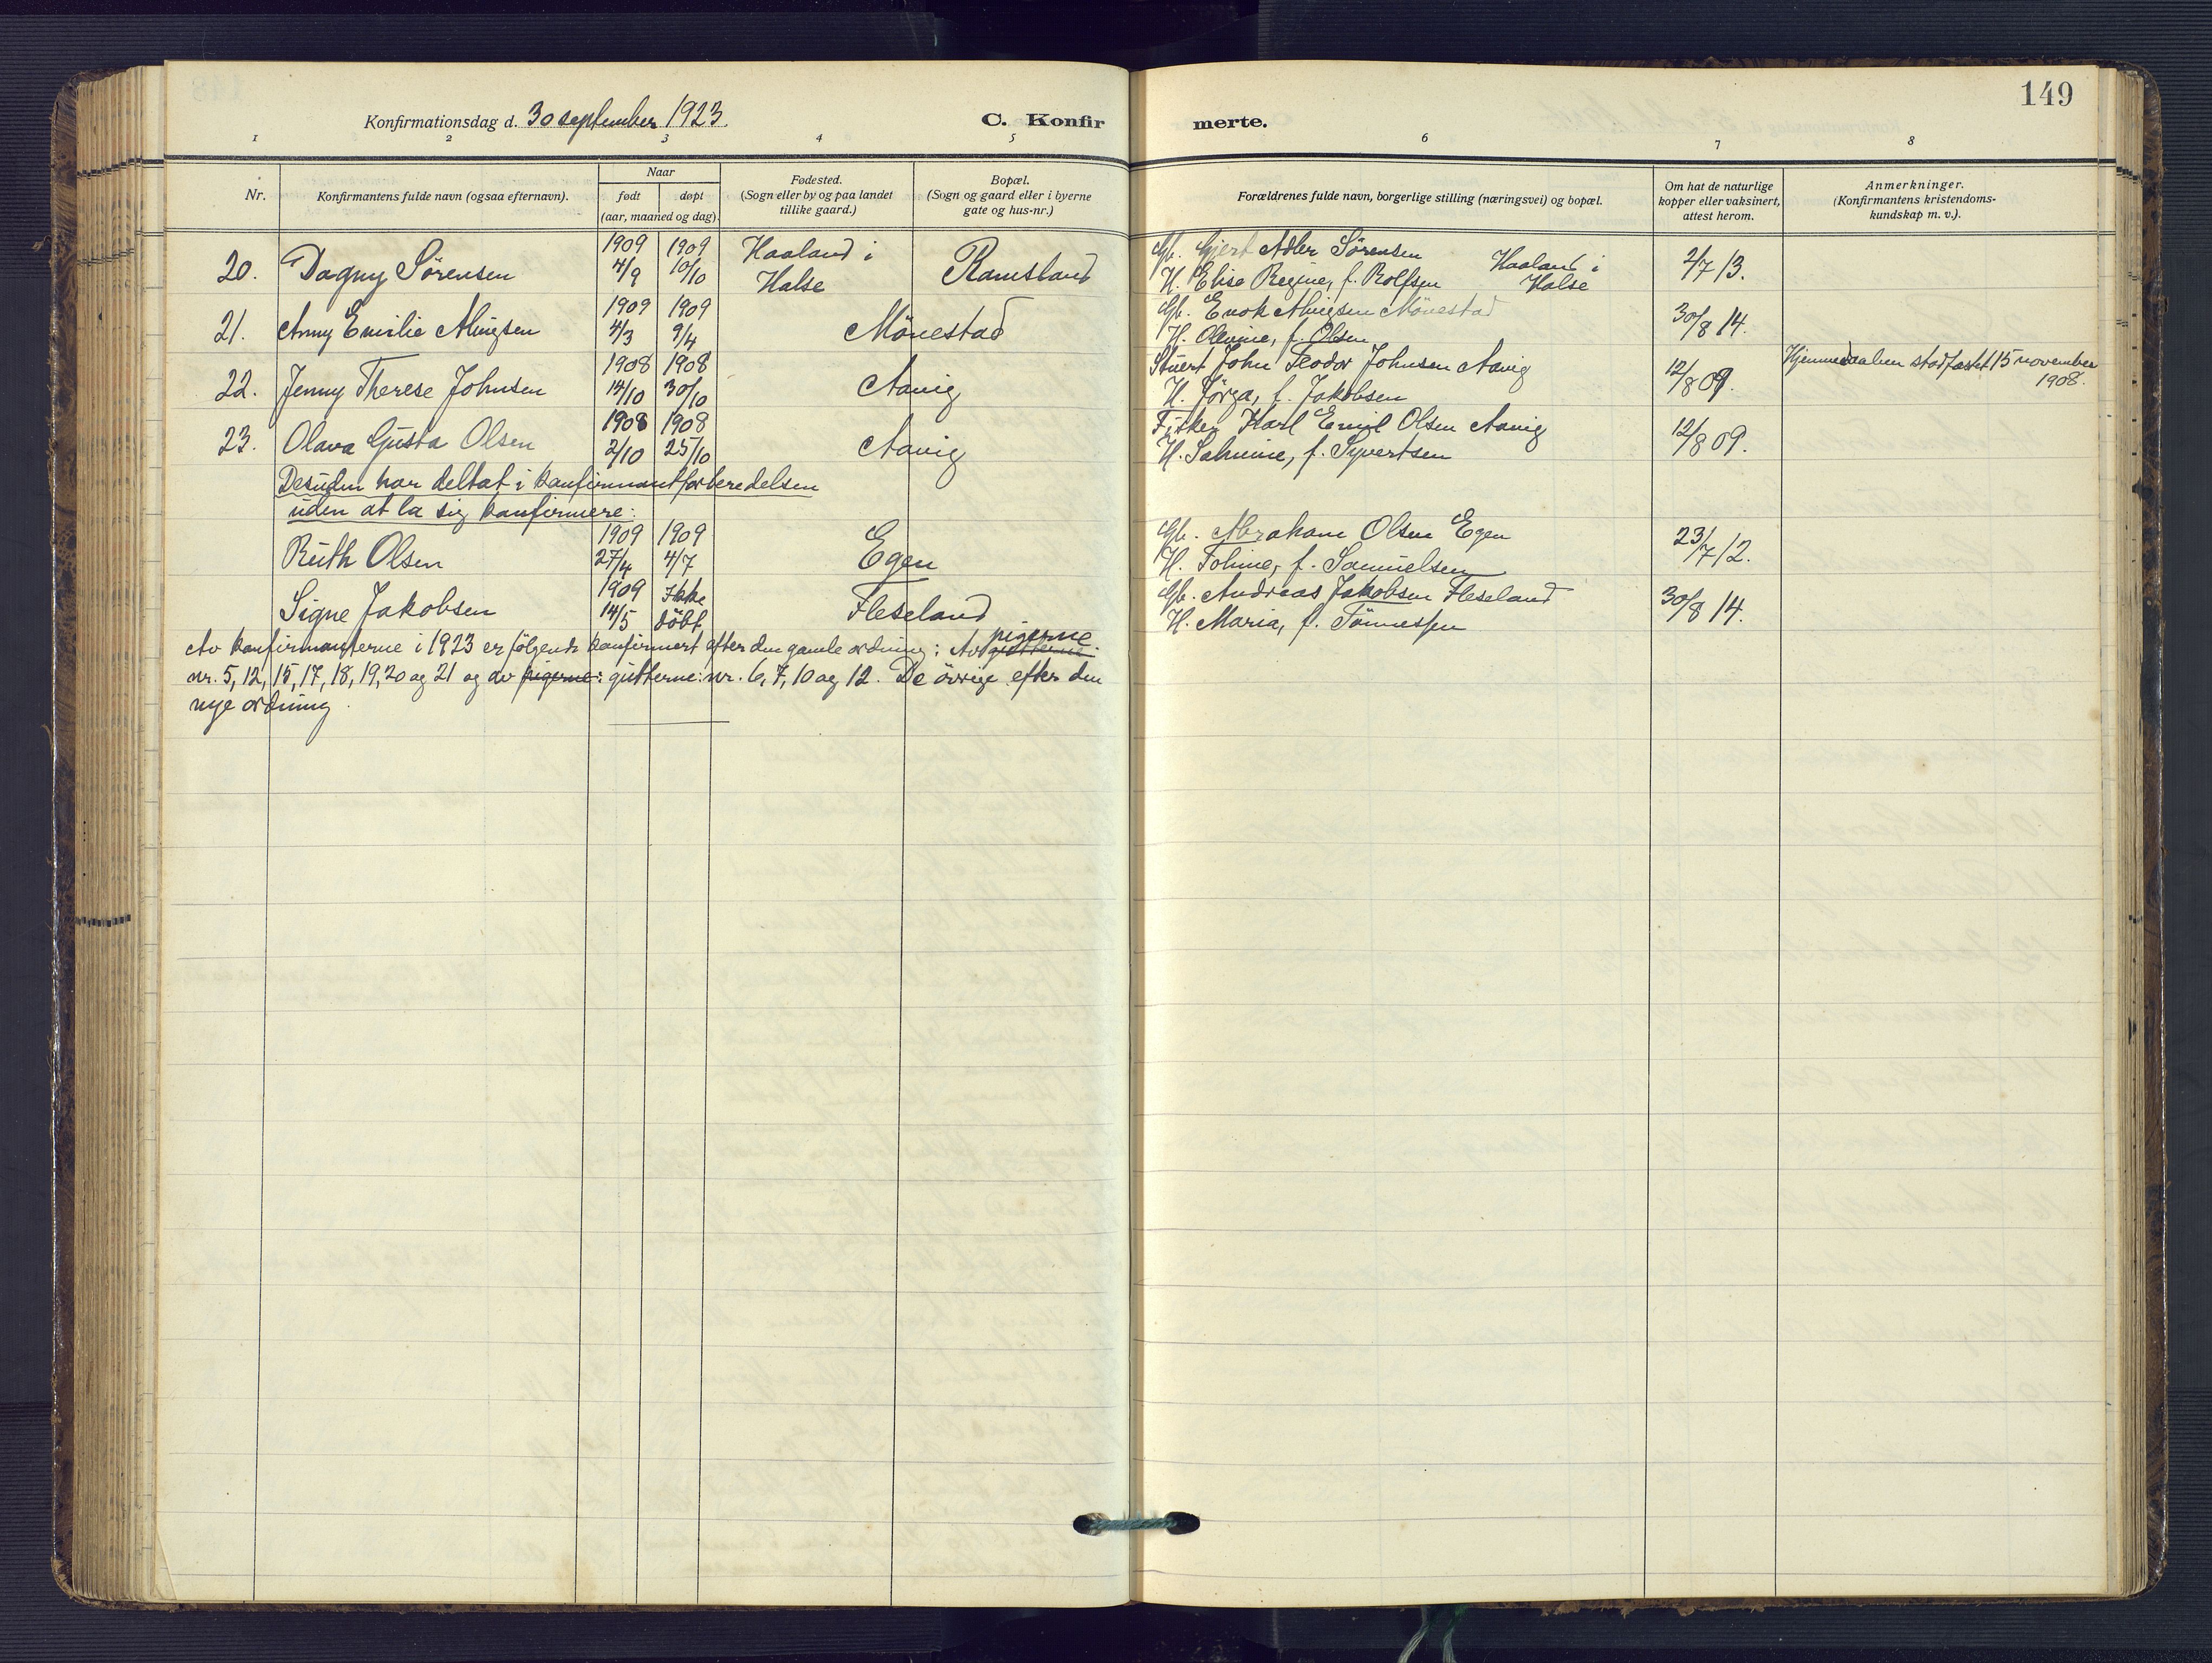 149
Konfirmationsdag d. 30 september 1923.
C. Konfirmerte.
1 2 3 4 5 6 7 8
Nr.
Konfirmantens fulde navn (ogsaa efternavn).
Naar
født
døpt
(aar, maaned og dag).
Fødested.
(Sogn eller by og paa landet
tillike gaard.)
Bopæl.
(Sogn og gaard eller i byerne
gate og hus-nr.)
Forældrenes fulde navn, borgerlige stilling (næringsvei) og bopæl.
Om hat de naturlige
kopper eller vaksinert,
attest herom.
Anmerkninger.
(Konfirmantens kristendoms-
kundskap m. v.).
1909 1909 Haaland i Gb. Gjert Adler Sørensen Haaland i
20. Dagny Sørensen 4/9 10/10 Halse Ramsland H. Elise Regine, f. Rolfsen Halse 2/7 13.
1909 1909 Gb. Enok Alnigsen Mönestad
21. Anny Emilie Alnigsen 4/3 9/4 Mönestad H. Olevine, f. Olsen 30/8 14.
1908 1908 Stuert John Teodor Johnsen Aavig Hjemmedaaben stadfæstet 15 november
22. Jenny Therese Johnsen 14/10 30/10 Aavig H. Jørga, f. Jakobsen 12/8 09. 1908.
1908 1908 Fisker Karl Emil Olsen Aavig
23. Olava Gusta Olsen 2/10 25/10 Aavig H. Salmine, f. Syvertsen 12/8 09.
Desuden har deltat i konfirmantforberedelsen
uden at la sig konfirmere:
1909 1909 Gb. Abraham Olsen Egen
Ruth Olsen 27/4 4/7 Egen H. Toline, f. Samuelsen 23/7 12.
1909 Ikke Gb. Andreas Jakobsen Fleseland
Signe Jakobsen 14/5 döbt Fleseland H. Maria, f. Tönnessen 30/8 14.
pigerne
Av konfirmanterne i 1923 er følgende konfirmert efter den gamle ordning: Av gutterne:
nr. 5, 12, 15, 17, 18, 19, 20 og 21 og av pigerne: gutterne: nr. 6, 7, 10 og 12. De övrige efter den
nye ordning.